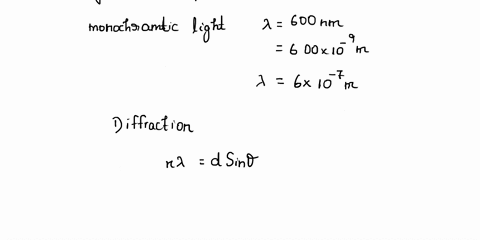 monochramtic light λ = 600 nm
= 600 × 10⁻⁹ m
λ = 6 × 10⁻⁷ m
Diffraction
nλ = d Sinθ